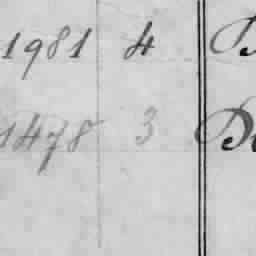 1981 4
1478 3